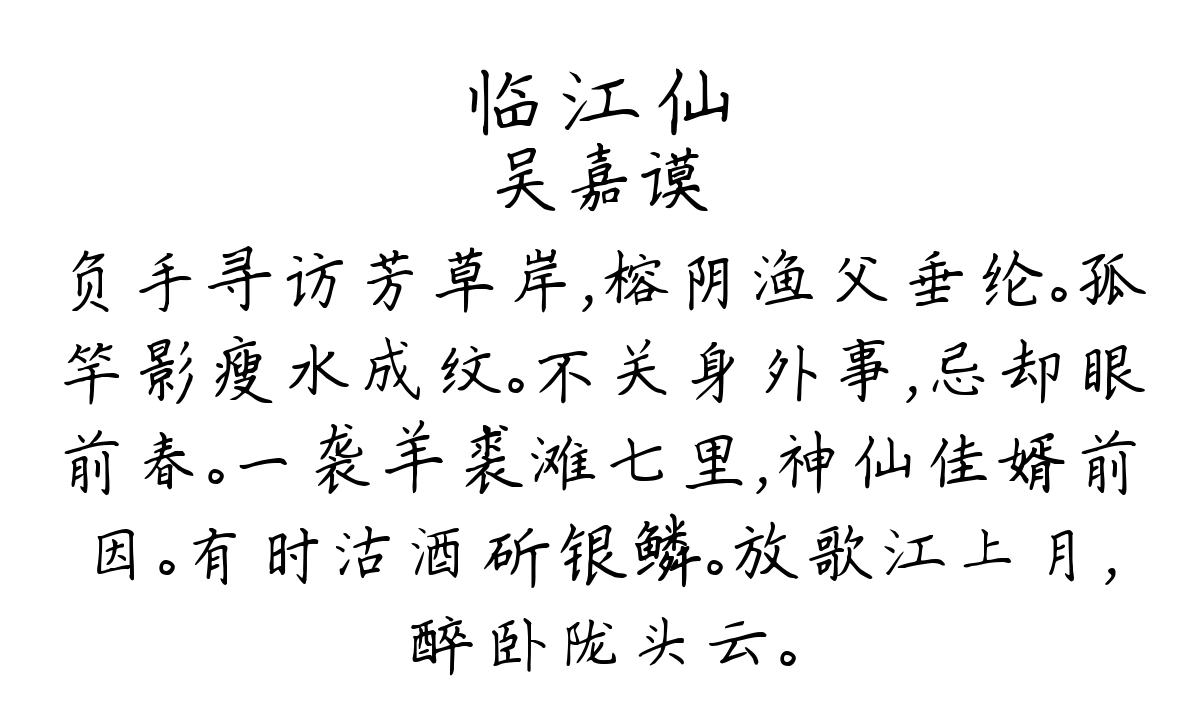 临江仙
吴嘉谟
负手寻访芳草岸,榕阴渔父垂纶。孤
竿影瘦水成纹。不关身外事,忌却眼
前春。一袭羊裘滩七里,神仙佳婿前
因。有时沽酒斫银鳞。放歌江上月,
醉卧陇头云。